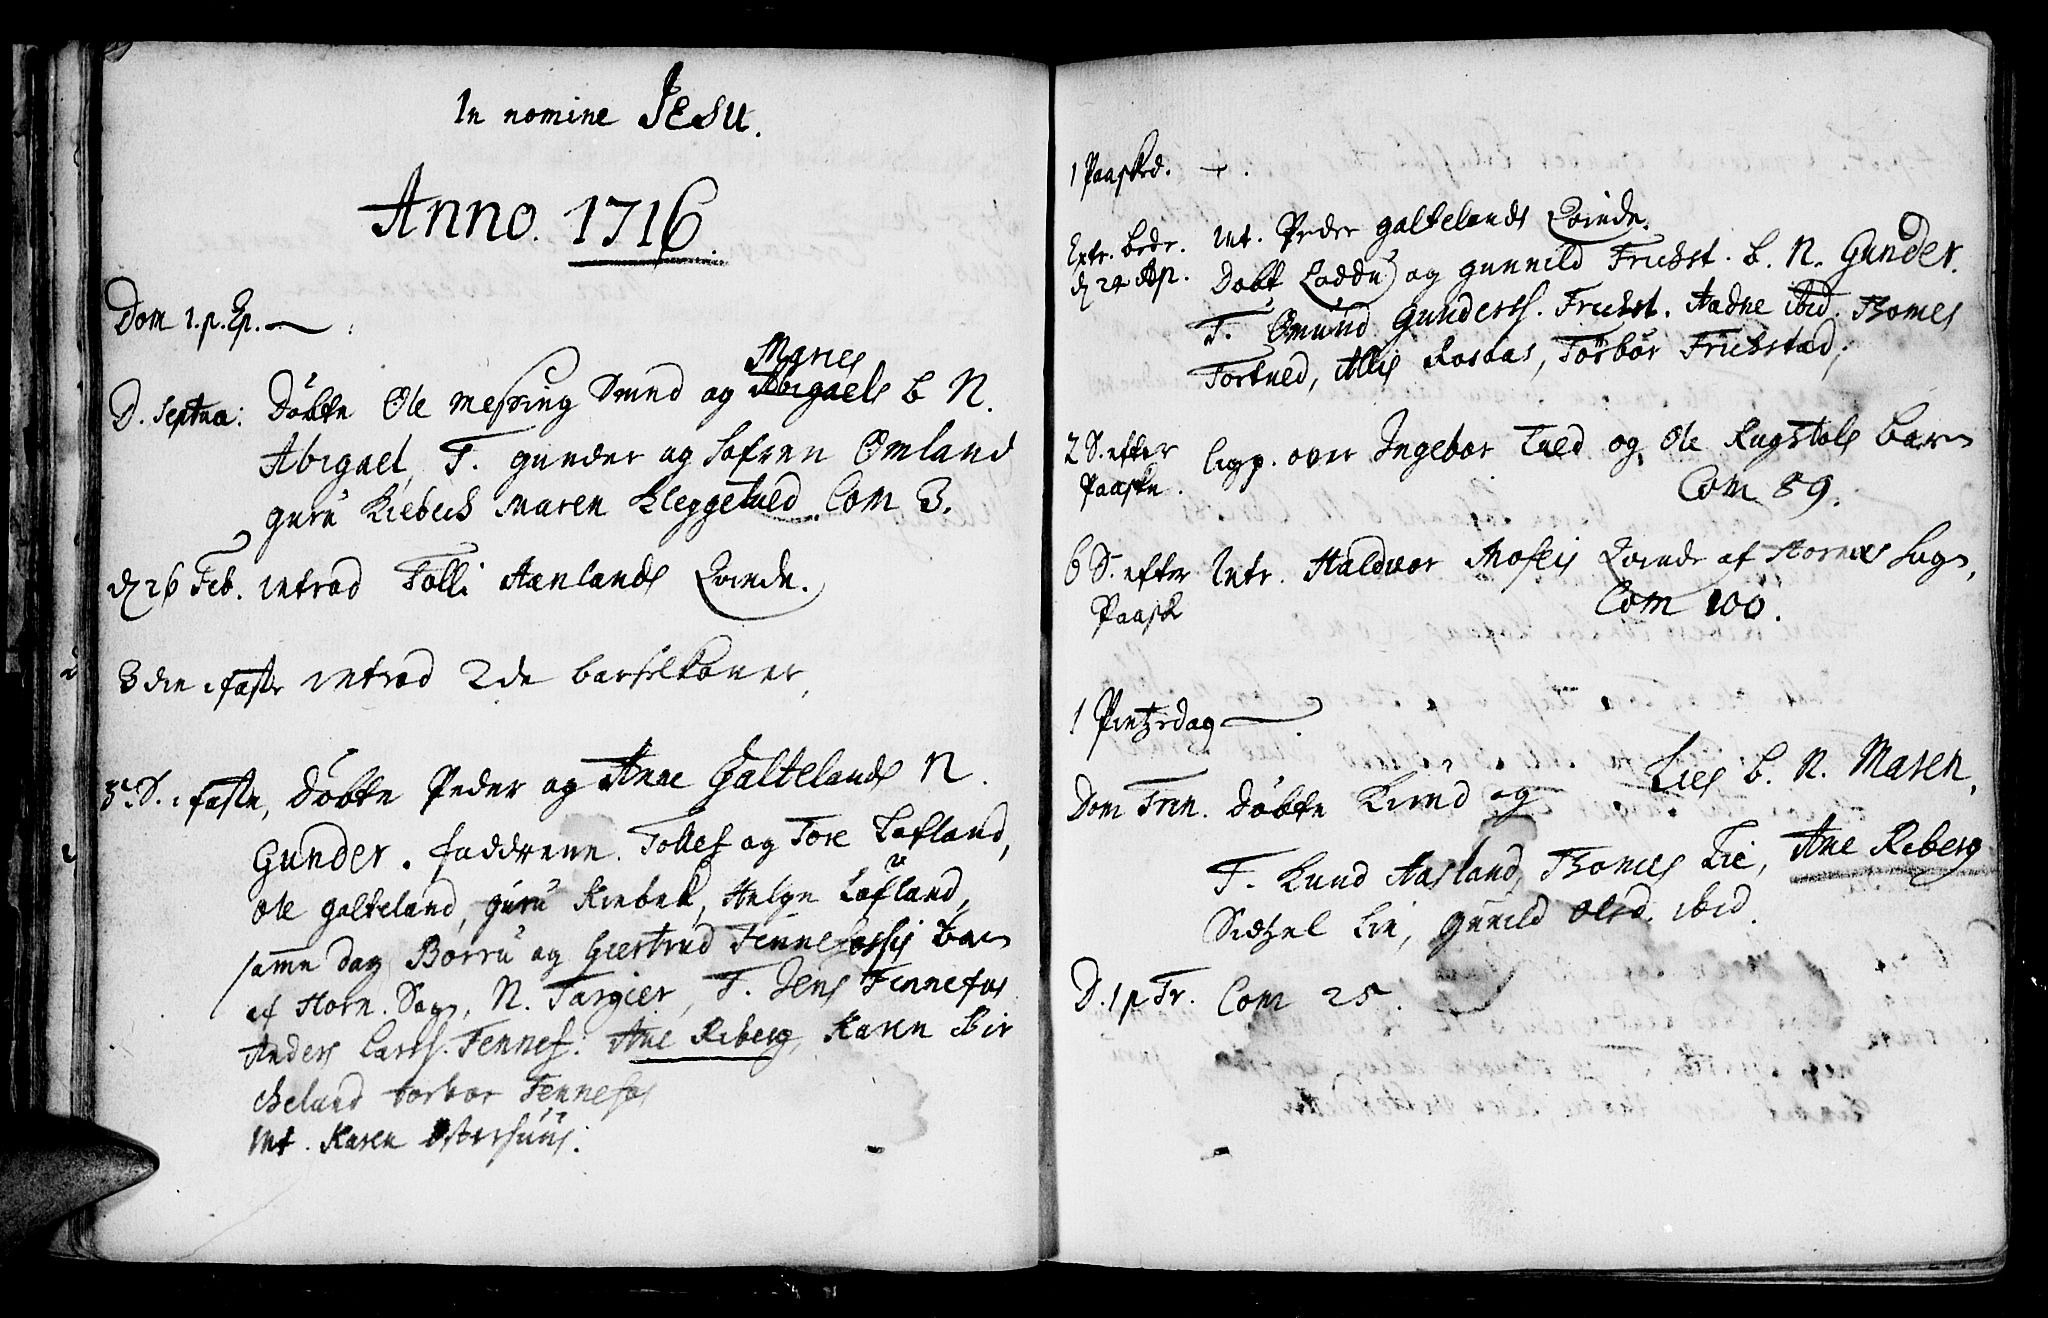 In nomine Jesu.
Anno. 1716.
Dom 1. p. Ep.
Agnes
D. Septua: Döbte Ole Messing Smed og Abigaels b N.
Abigael, T. gunder og Sofren Omland
guru Kiebeck Maren Kleggetved Com 3.
d 26 Feb. introd Tolli Aanlands Qvinde.
3die i faste introd 2de barselkoner,
3e S. i faste, Döbte Peder og Anne Galtelands N.
Gunder. faddrene. Tollef og Tore Lofland,
Ole galteland, guru Kiebek, Helge Lofland,
samme dag Börru og Giertrud Fennefossis barn
af Horn. Sogn, N. Targier, F. Jens Fennefos
Anders Larss. Fennef: Ane Riberg, Karen Bir
cheland torbor Fennefos
Int. Karen Ostershuus:
1 Paaskd. +.
Extr. bedr. Int. Peder galtelands Qvinde.
d 24 Ap. Dobt Loddu og gunnild Frichst. b. N. Gunder.
T. Omund Gunderss. Frichst. Aadne ibid. Thomes
Tortved, Allis Rosaas, Torbor Frichstad,
2 S. efter ligp. over Ingebor Tved og Ole Rugstols barn
Paaske. Com 89.
6 S. efter Intr. Haldvor Moseis Qvinde af Hornæs Sogn,
Paask Com 100.
1 Pintzedag
Dom Trin. Döbte Knud og Lies b. N. Maren,
F. Knud Aasland, Thomes Lie, Ane Riberg
Sidtzel Lie, Gunild Olsd. ibid.
D. 1 p Tr. Com 25.